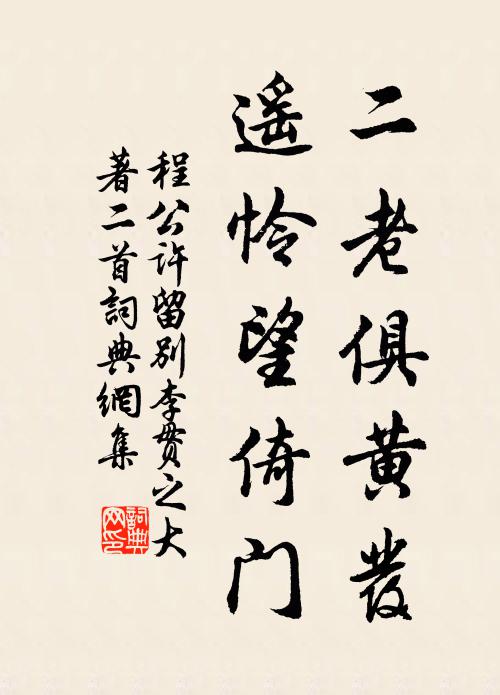 二老俱黄發
遥怜望倚门
程公许留别李贯之大
著二首詞典網集
詞典网印